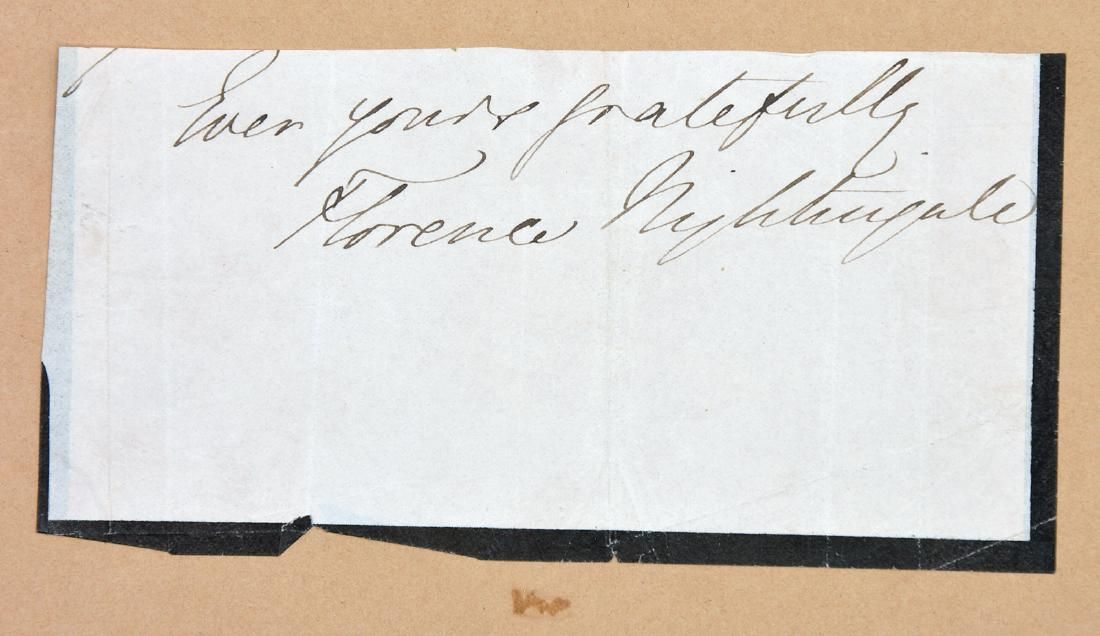 Ever yours gratefully
Florence Nightingale